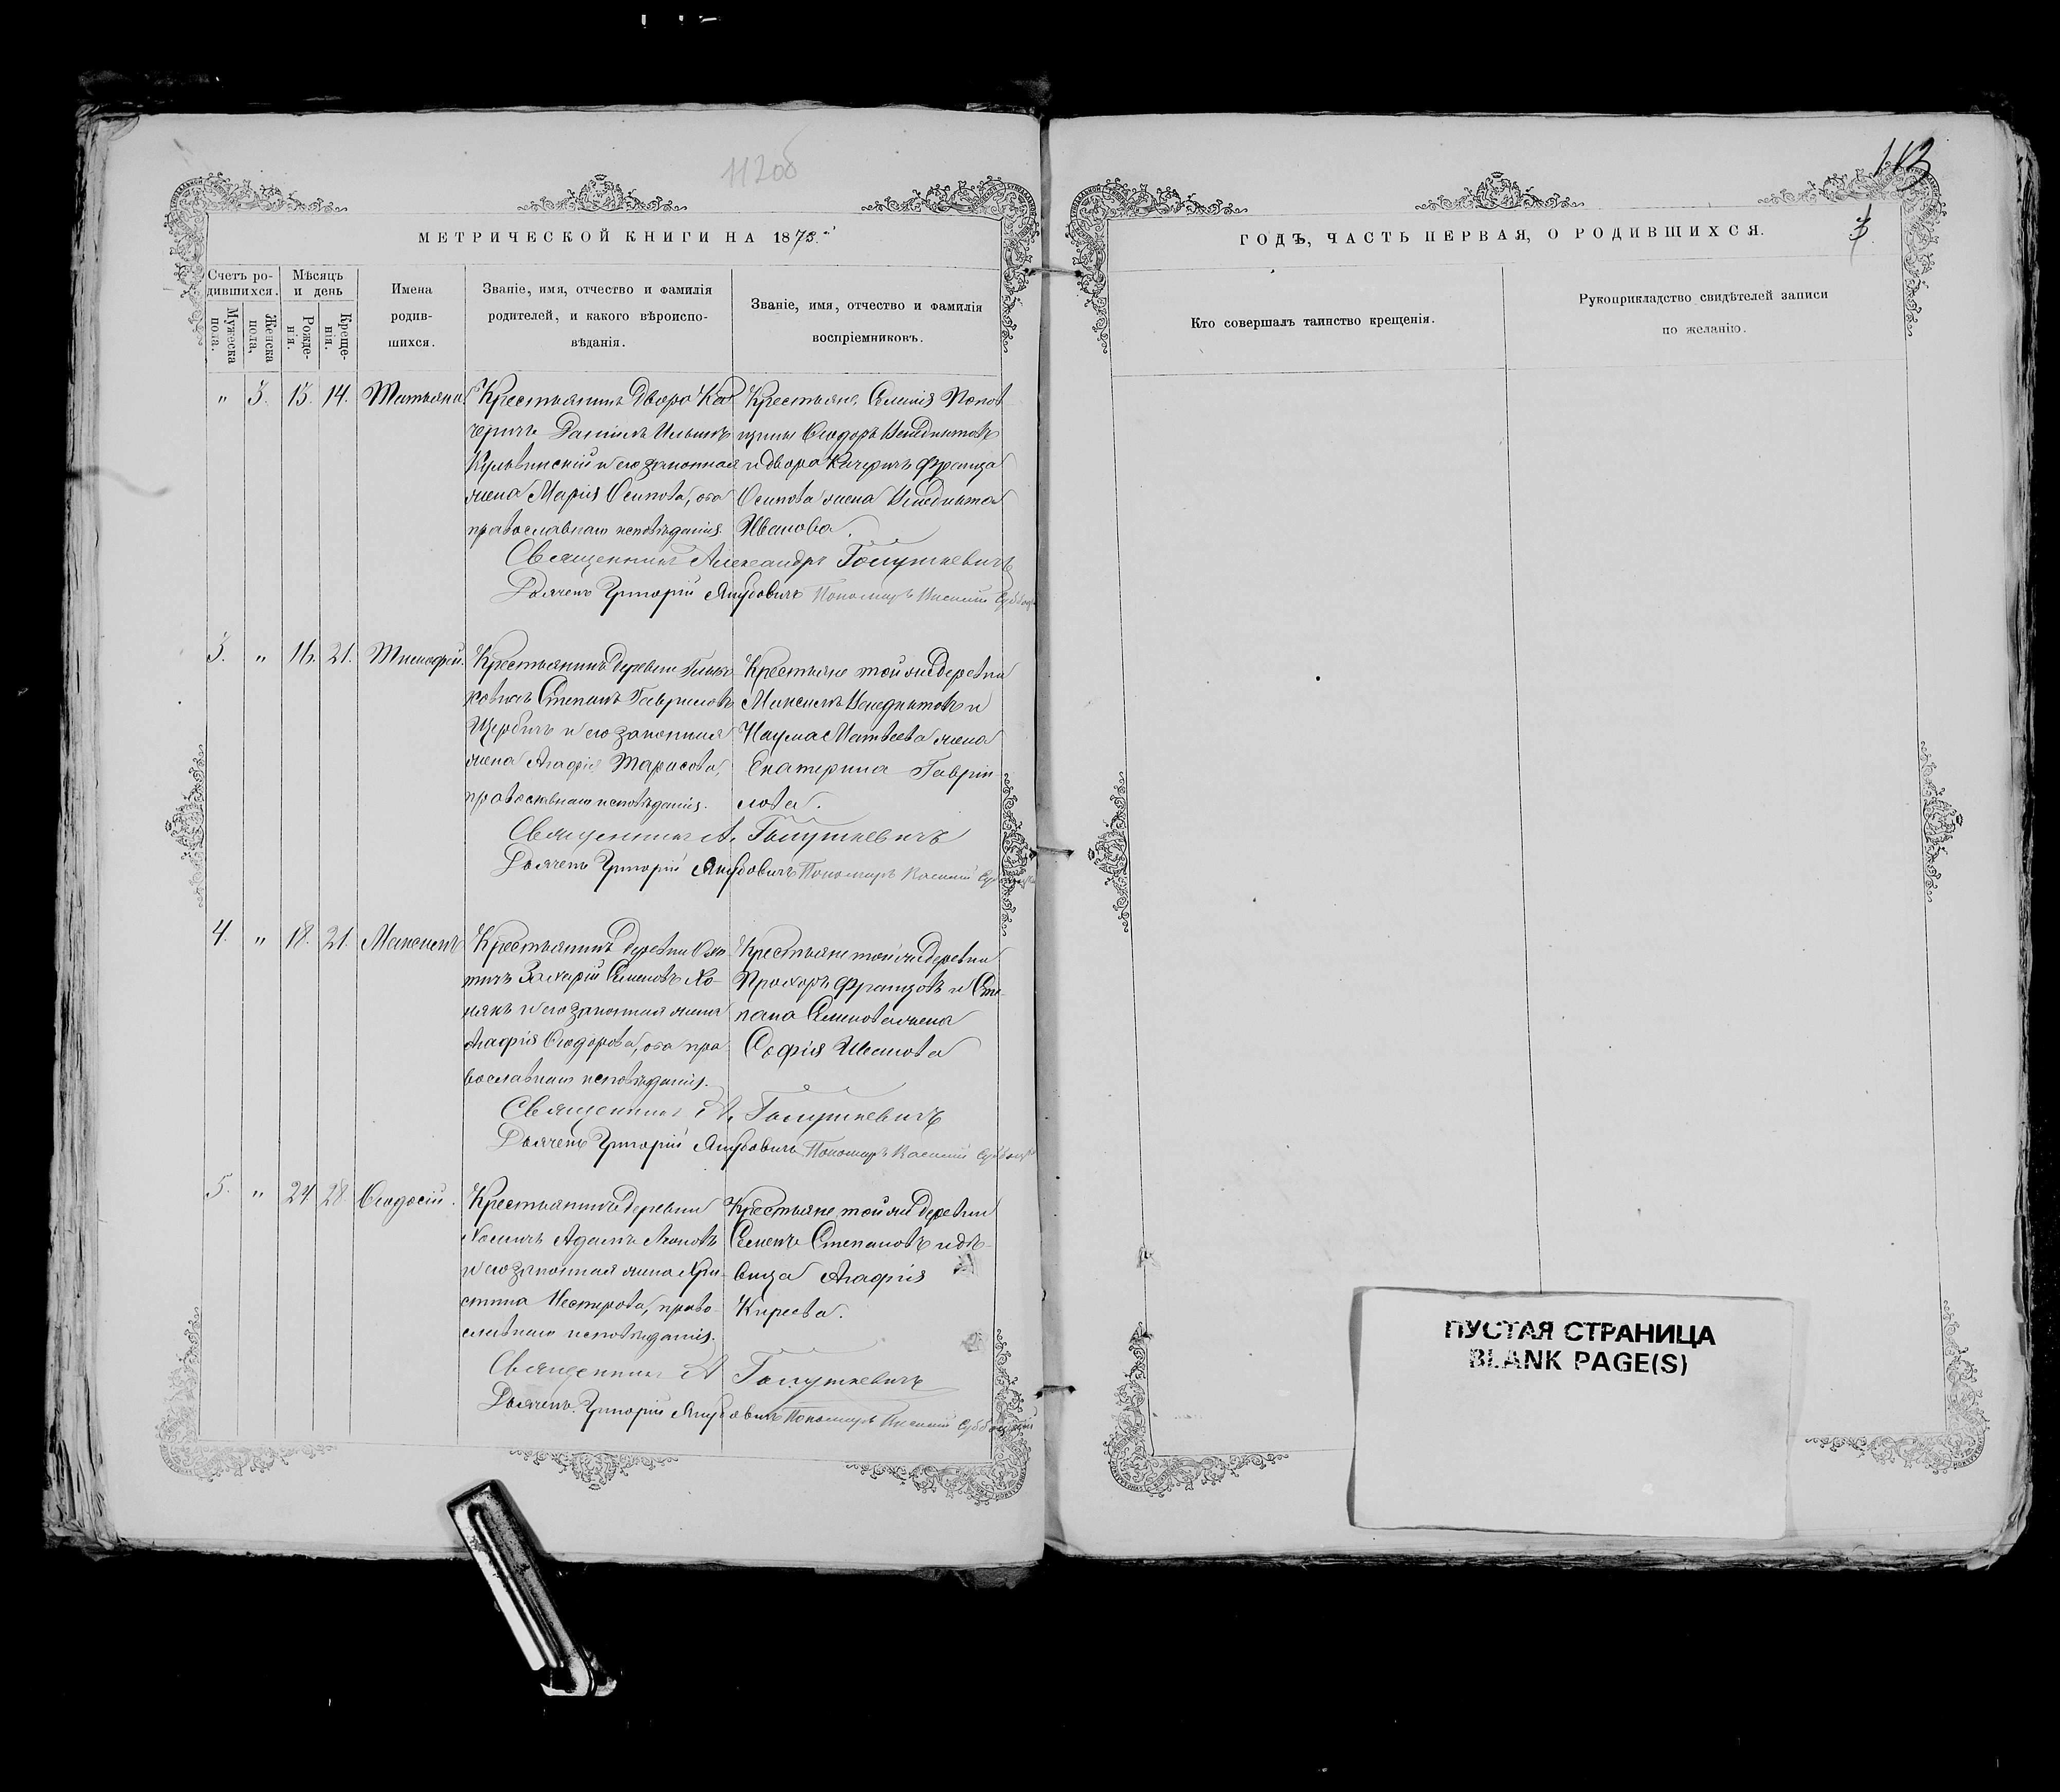 112об
МЕТРИЧЕСКОЙ КНИГИ НА 1873.й
Счетъ ро-
дившихся.
Мужеска пола.
Женска пола.
Мѣсяцъ
и день
Рожде-
нія.
Креще-
нія.
Имена
родив-
шихся.
Званіе, имя, отчество и фамилія
родителей, и какого вѣроиспо-
вѣданія.
Званіе, имя, отчество и фамилія
воспріемниковъ.
" 3. 13. 14. Татьяна
Крестьянинъ двора Ка
черичъ Даніилъ Ильинъ
и его законная
жена Марія Осипова, оба
православнаго исповѣданія.
Крестьяне Селенія Попов
щины Ѳеодоръ Венедиктовъ
и двора Качеричъ Француза
Осипова жена
Иванова.
Священникъ Александръ Голушкевичъ
Дьячекъ Григорій Якубовичъ Пономарь Василій
3. " 16. 21. Тимофей.
Крестьянинъ деревни
Степанъ Гавриловъ
Щербичъ и его законная
жена Агафія Тарасова,
православнаго исповѣданія.
Крестьяне той же деревни
Максимъ Венедиктовъ и
Наума Матвеева жена
Екатерина Гаврiи-
лова.
Священникъ А. Голушкевичъ
Дьячекъ Григорій Якубовичъ Пономарь Василій
4. " 18. 21. Максимъ
Крестьянинъ деревни Охо-
тичъ Захарій Семеновъ Хо-
мякъ и его законная жена
Агафія Ѳеодорова, оба пра
вославнаго исповѣданія.
Крестьяне той же деревни
Прохоръ Французовъ и Сте-
пана Семенова жена
Софія Иванова
Священникъ А. Голушкевичъ
Дьячекъ Григорій Якубовичъ Пономарь Василій
5. " 24 28. Ѳеодосій.
Крестьянинъ деревни
Холмичъ Адамъ Леоновъ
и его законная жена Хри-
стина Нестерова, право-
славнаго исповѣданія.
Крестьяне той же деревни
Семенъ Степановъ и дѣ-
вица Агафія
Киреева.
Священникъ А Голушкевичъ
Дьячекъ Григорій Якубовичъ Пономарь Василій Субботскій
113
3.
ГОДЪ, ЧАСТЬ ПЕРВАЯ, О РОДИВШИХСЯ.
Кто совершалъ таинство крещенія.
Рукоприкладство свидѣтелей записи
по желанію.
ПУСТАЯ СТРАНИЦА
BLANK PAGE(S)